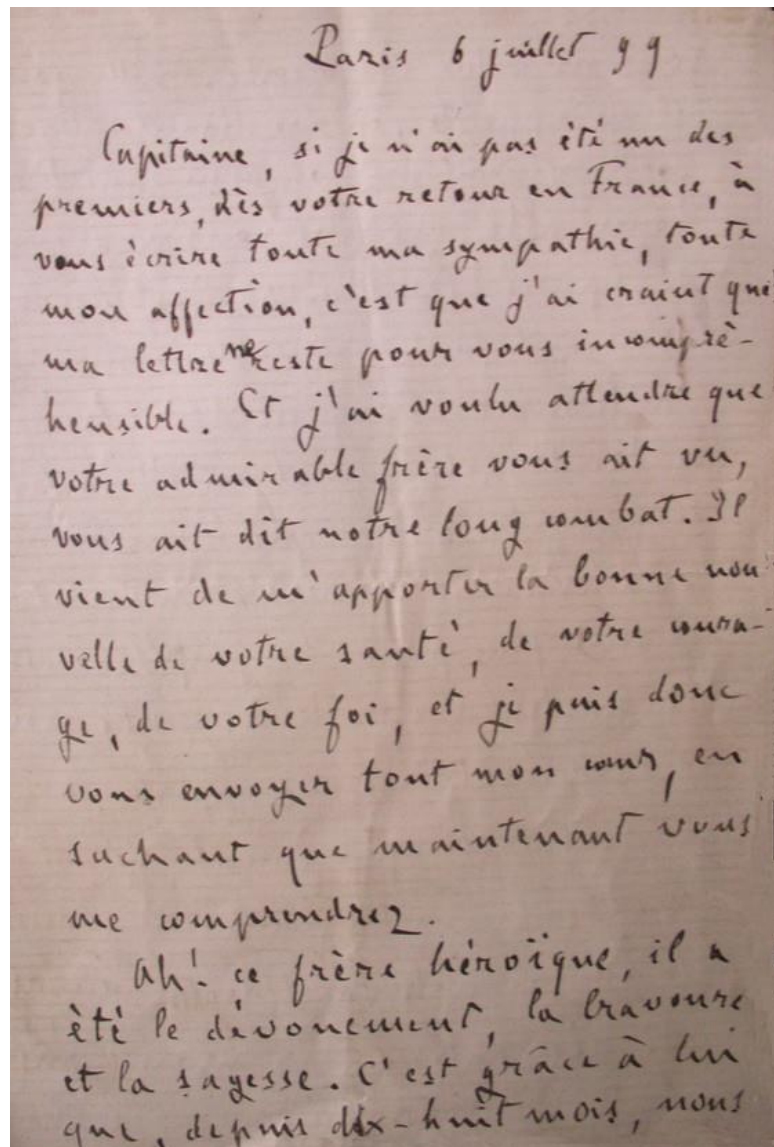 Paris 6 juillet 99
Capitaine, si je n'ai pas été un des
premiers, dès votre retour en France, à
vous écrire toute ma sympathie, toute
mon affection, c'est que j'ai craint que
ma lettre ne reste pour vous incompré-
hensible. Et j'ai voulu attendre que
votre admirable frère vous ait vu,
vous ait dit notre long combat. Il
vient de m'apporter la bonne nou
velle de votre santé, de votre coura-
ge, de votre foi, et je puis donc
vous envoyer tout mon cœur, en
sachant que maintenant vous
me comprendrez.
Ah! ce frère héroïque, il a
été le dévouement, la bravoure
et la sagesse. C'est grâce à lui
que, depuis dix-huit mois, nous